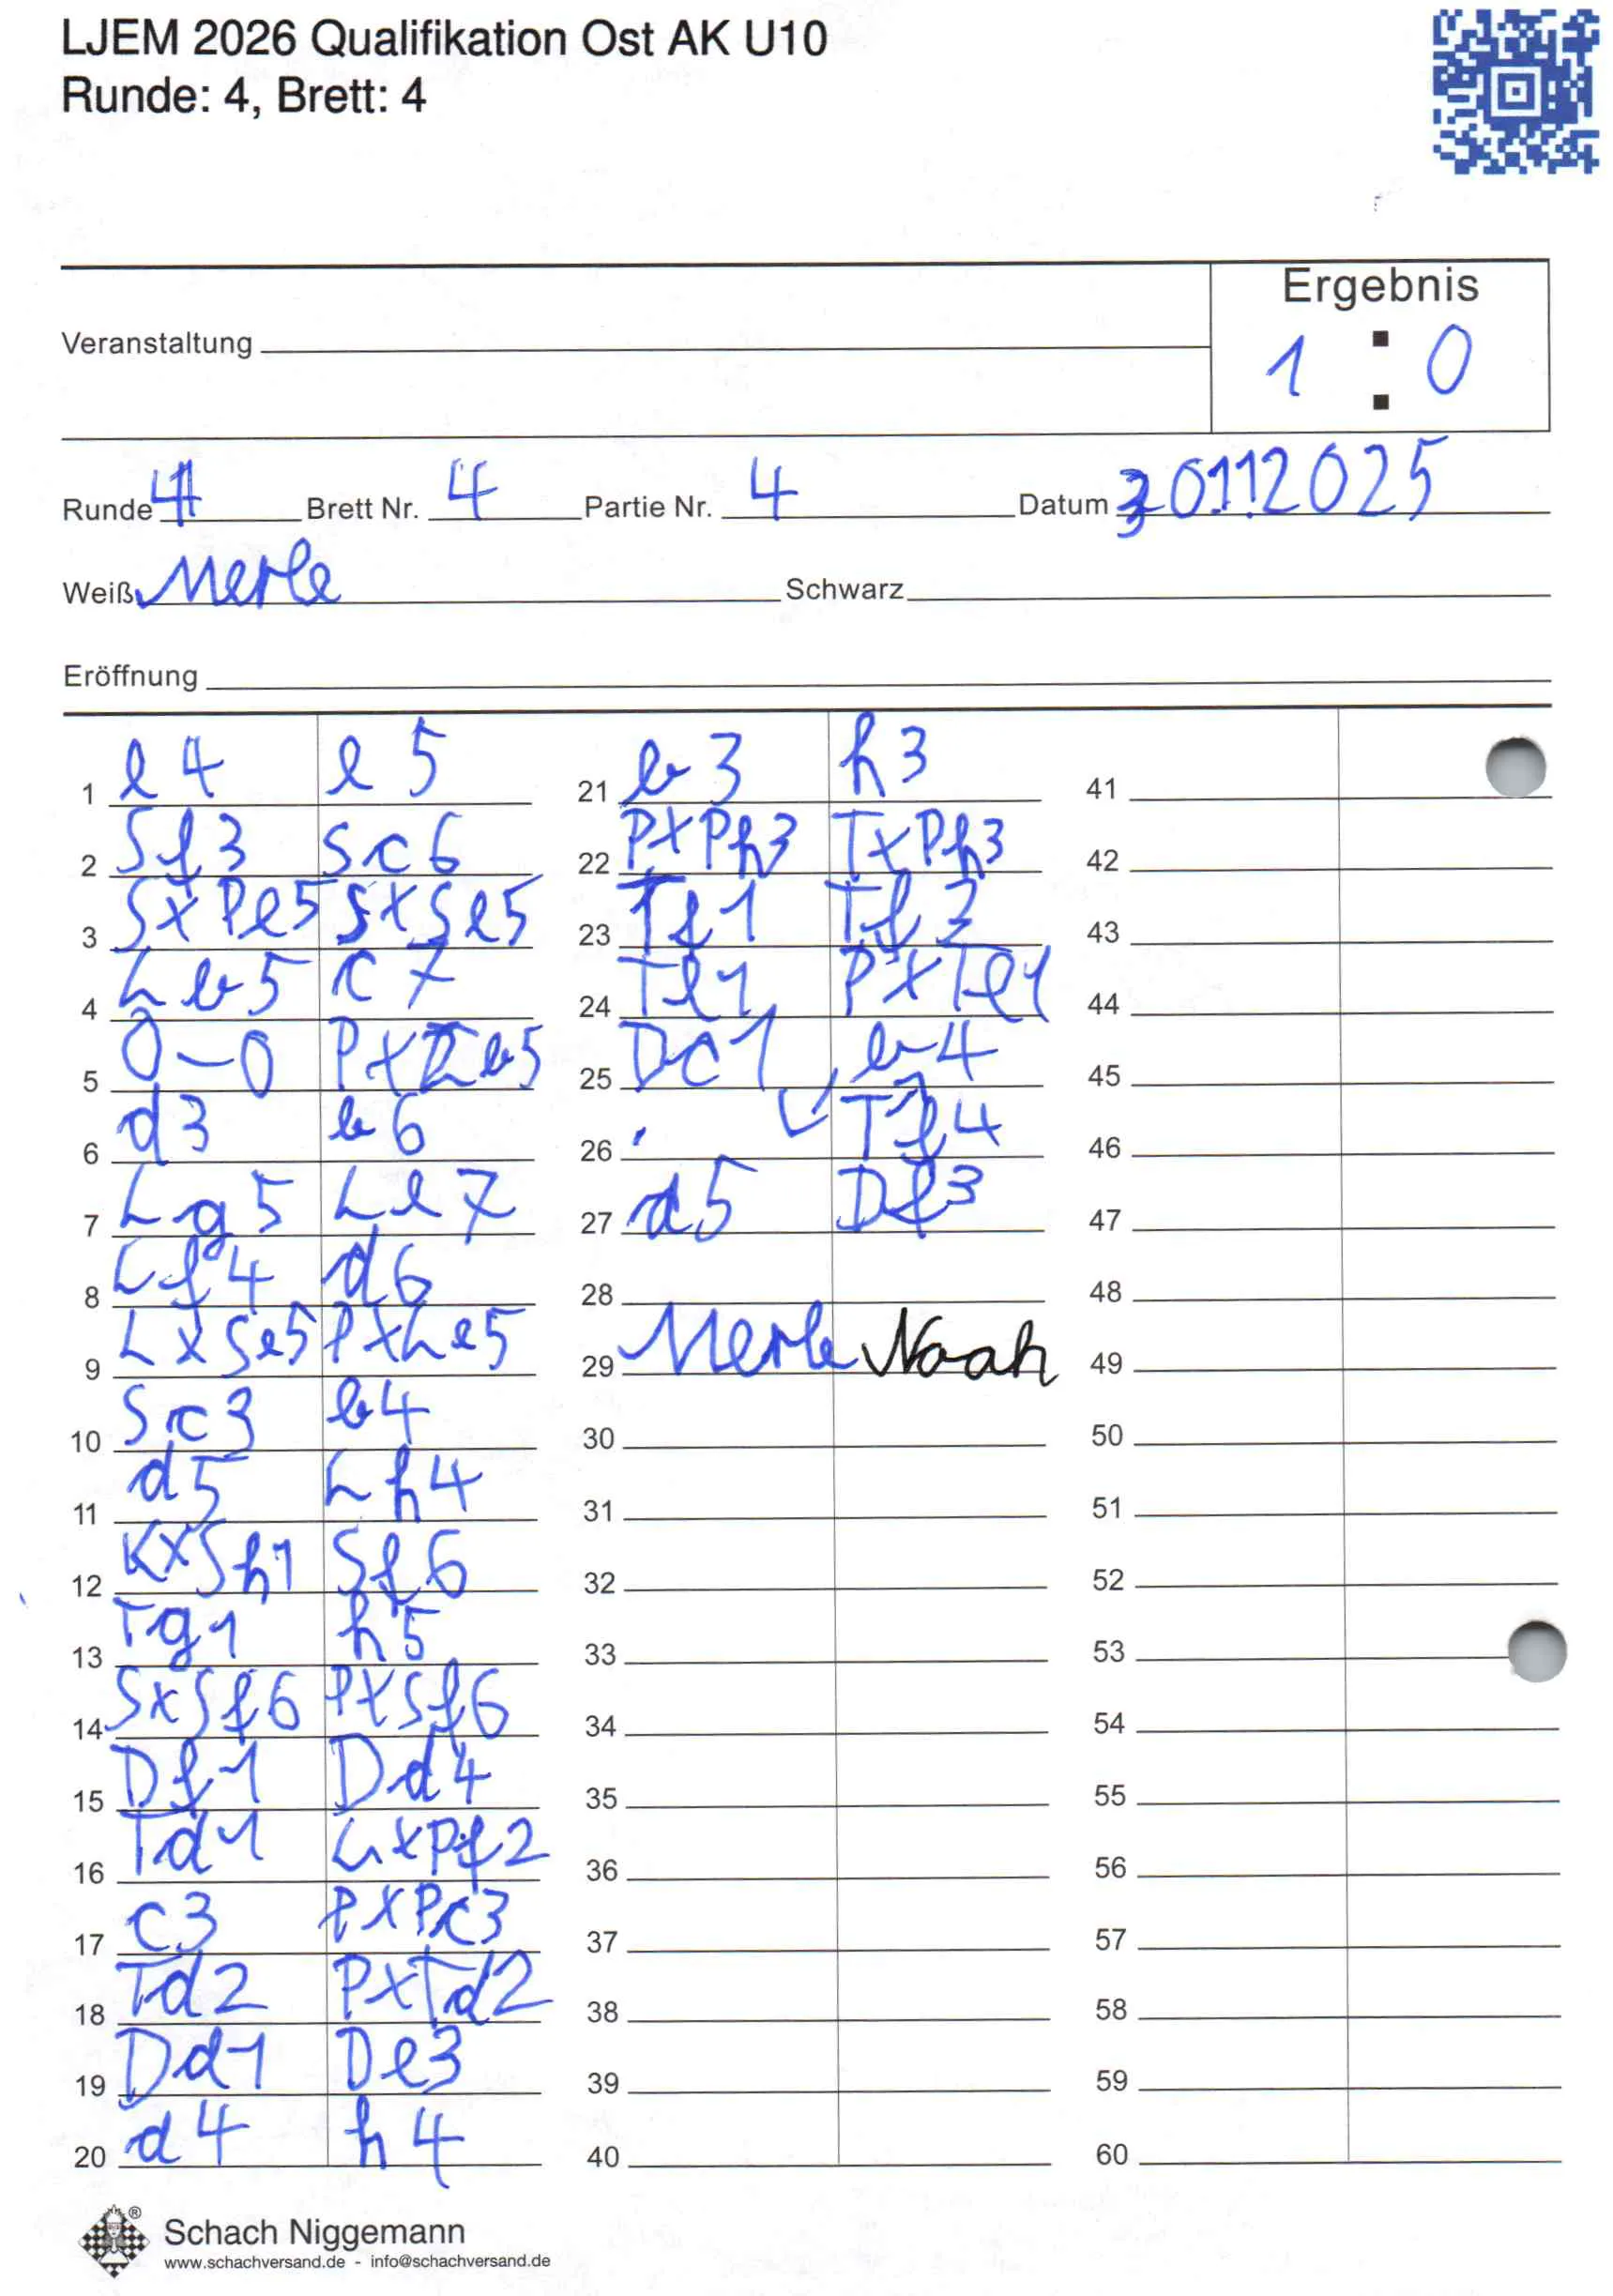 LJEM 2026 Qualifikation Ost AK U10
Runde: 4, Brett: 4
Ergebnis
1 : 0
Veranstaltung
Runde 4 Brett Nr. 4 Partie Nr. 4 Datum 30.11.2025
Weiß Merle Schwarz
Eröffnung
1 e4 e5 21 b3 h3 41
2 Sf3 Sc6 22 PxPh3 TxPh3 42
3 SxPe5 SxSe5 23 Tf1 Tf3 43
4 Lb5 c7 24 Te1 PxTe1 44
5 0-0 PxLb5 25 Dc1 b4 45
6 d3 b6 26 Tf4 46
7 Lg5 Le7 27 d5 Df3 47
8 Lf4 d6 28 48
9 LxSe5 PxLe5 29 Merle Noah 49
10 Sc3 b4 30 50
11 d5 Lh4 31 51
12 KxSh1 Sf6 32 52
13 Tg1 h5 33 53
14 SxSf6 PxSf6 34 54
15 Df1 Dd4 35 55
16 Td1 LxPf2 36 56
17 c3 PxPc3 37 57
18 Td2 PxTd2 38 58
19 Dd1 De3 39 59
20 d4 h4 40 60
®
Schach Niggemann
www.schachversand.de - info@schachversand.de